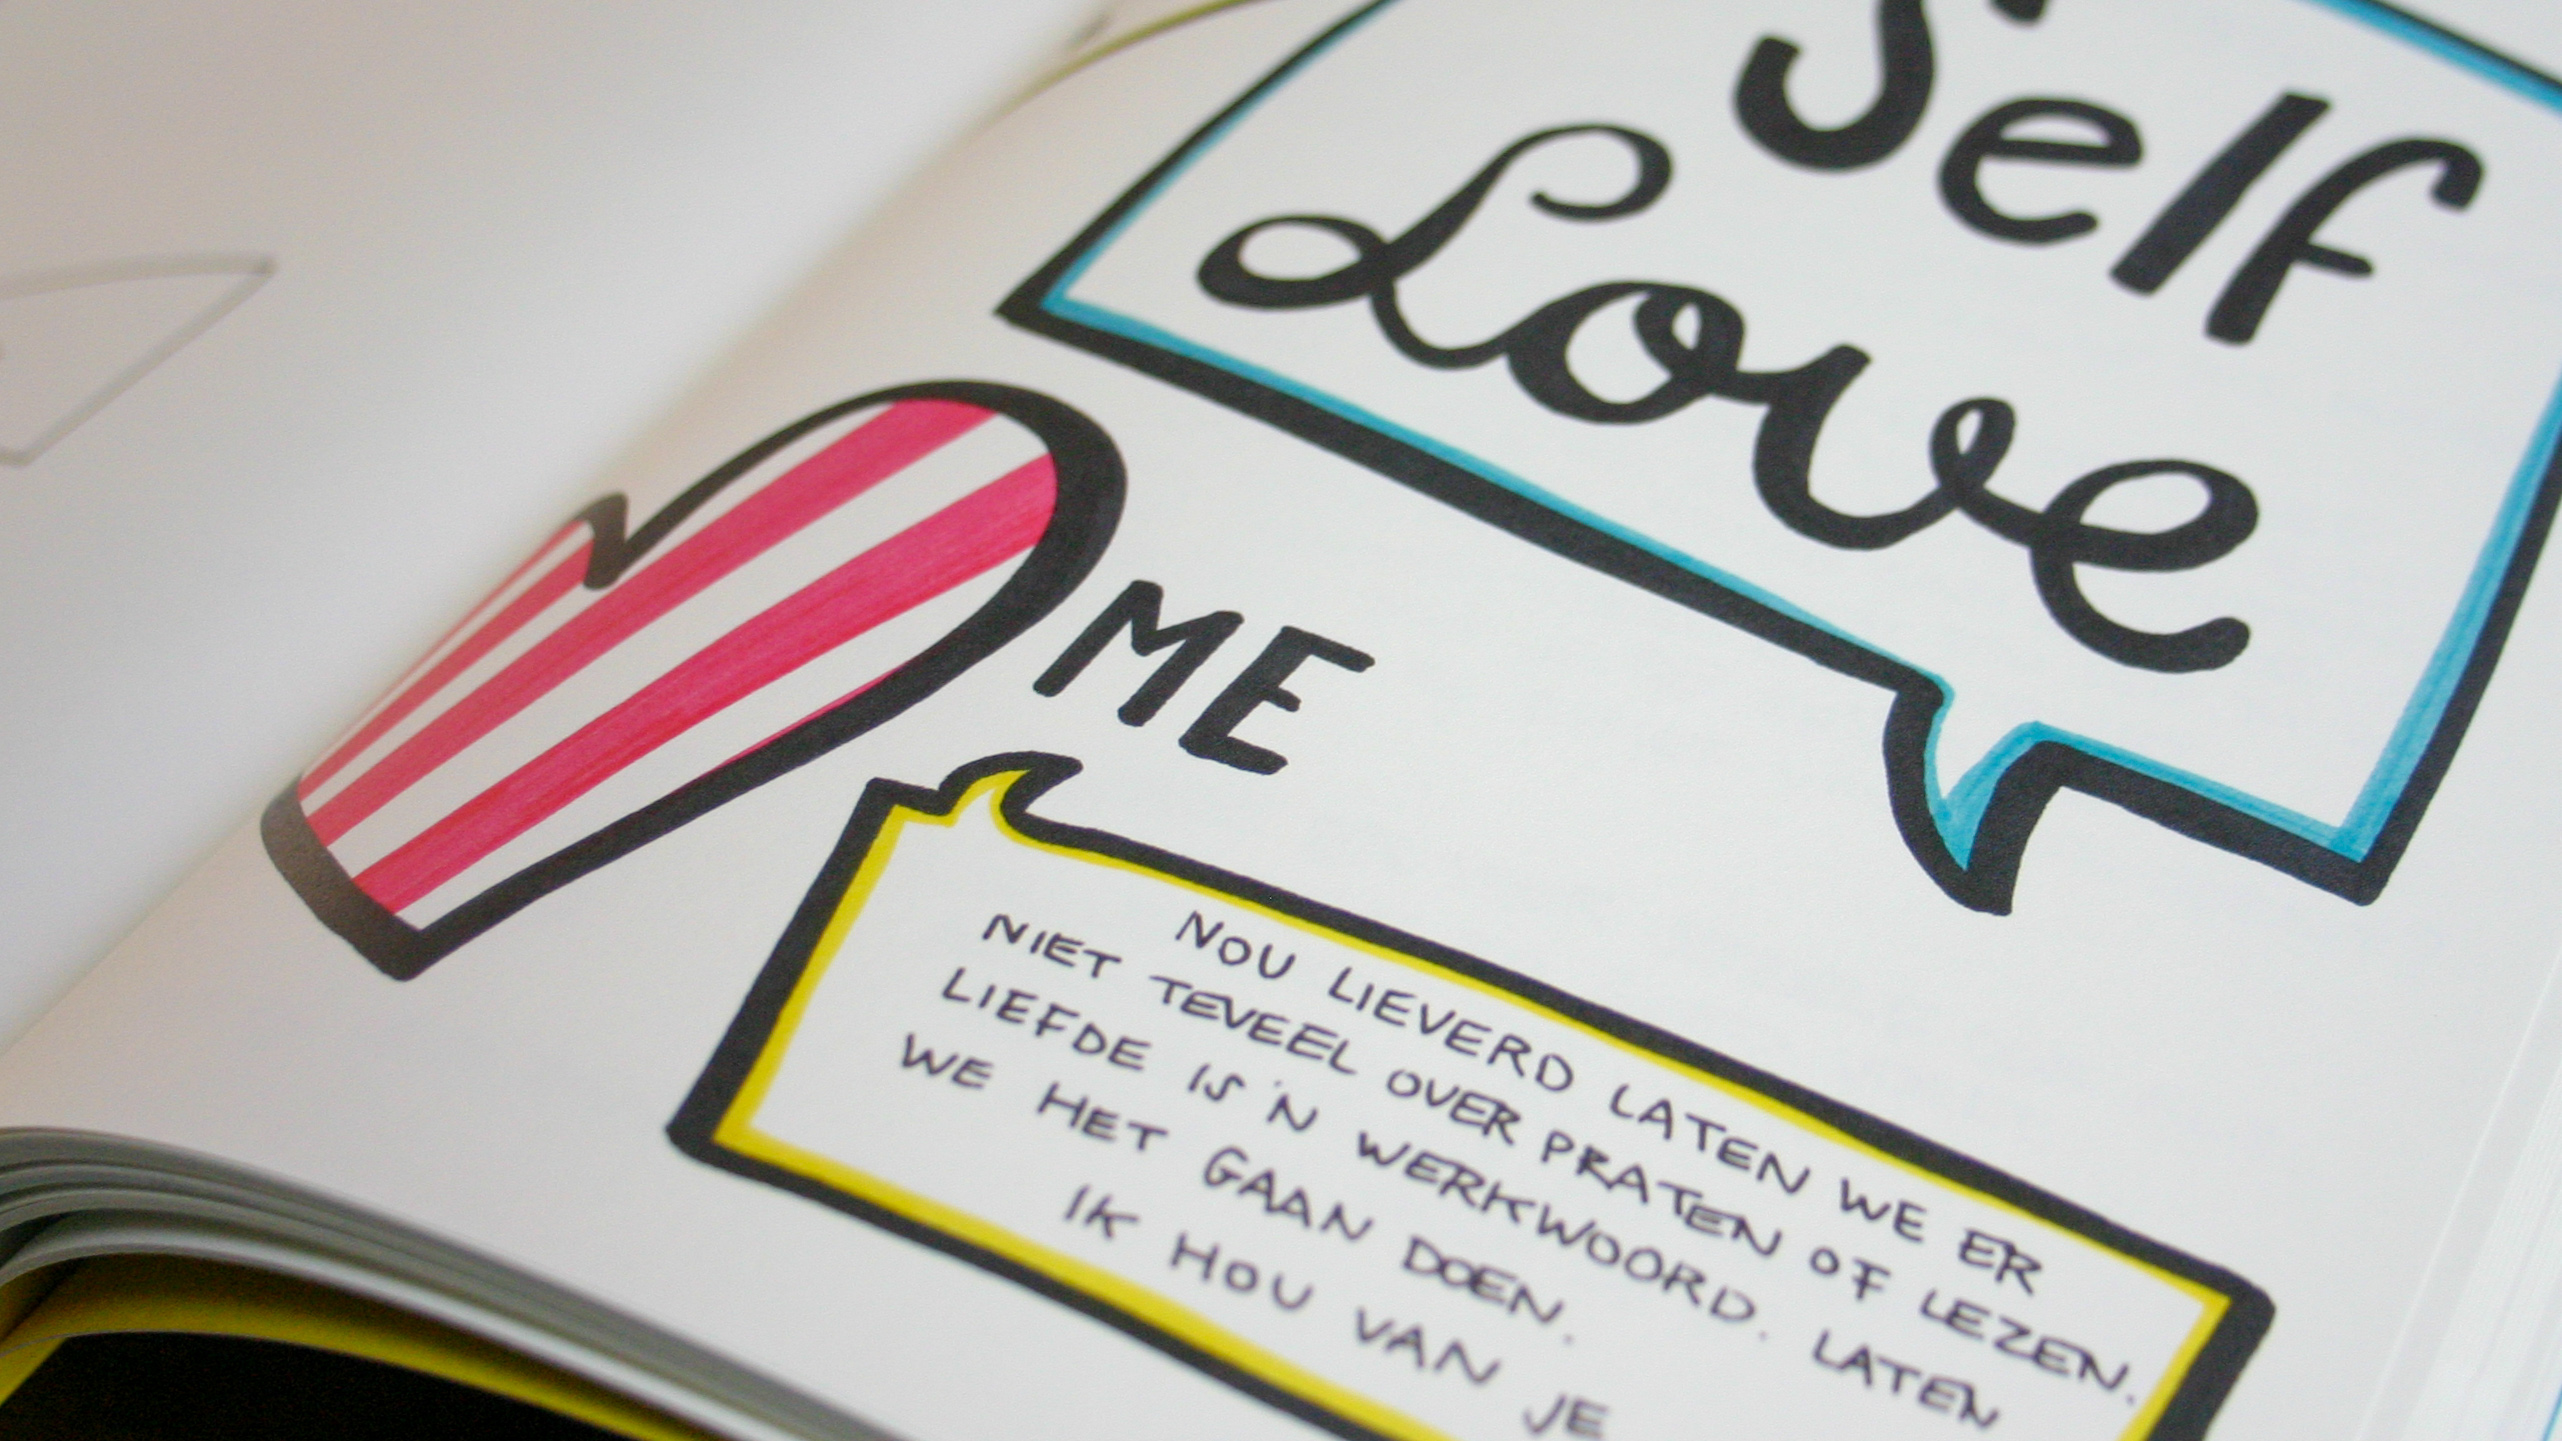 Self
Love
ME
NOU LIEVERD LATEN WE ER
NIET TEVEEL OVER PRATEN OF LEZEN.
LIEFDE IS 'N WERKWOORD. LATEN
WE HET GAAN DOEN.
IK HOU VAN JE